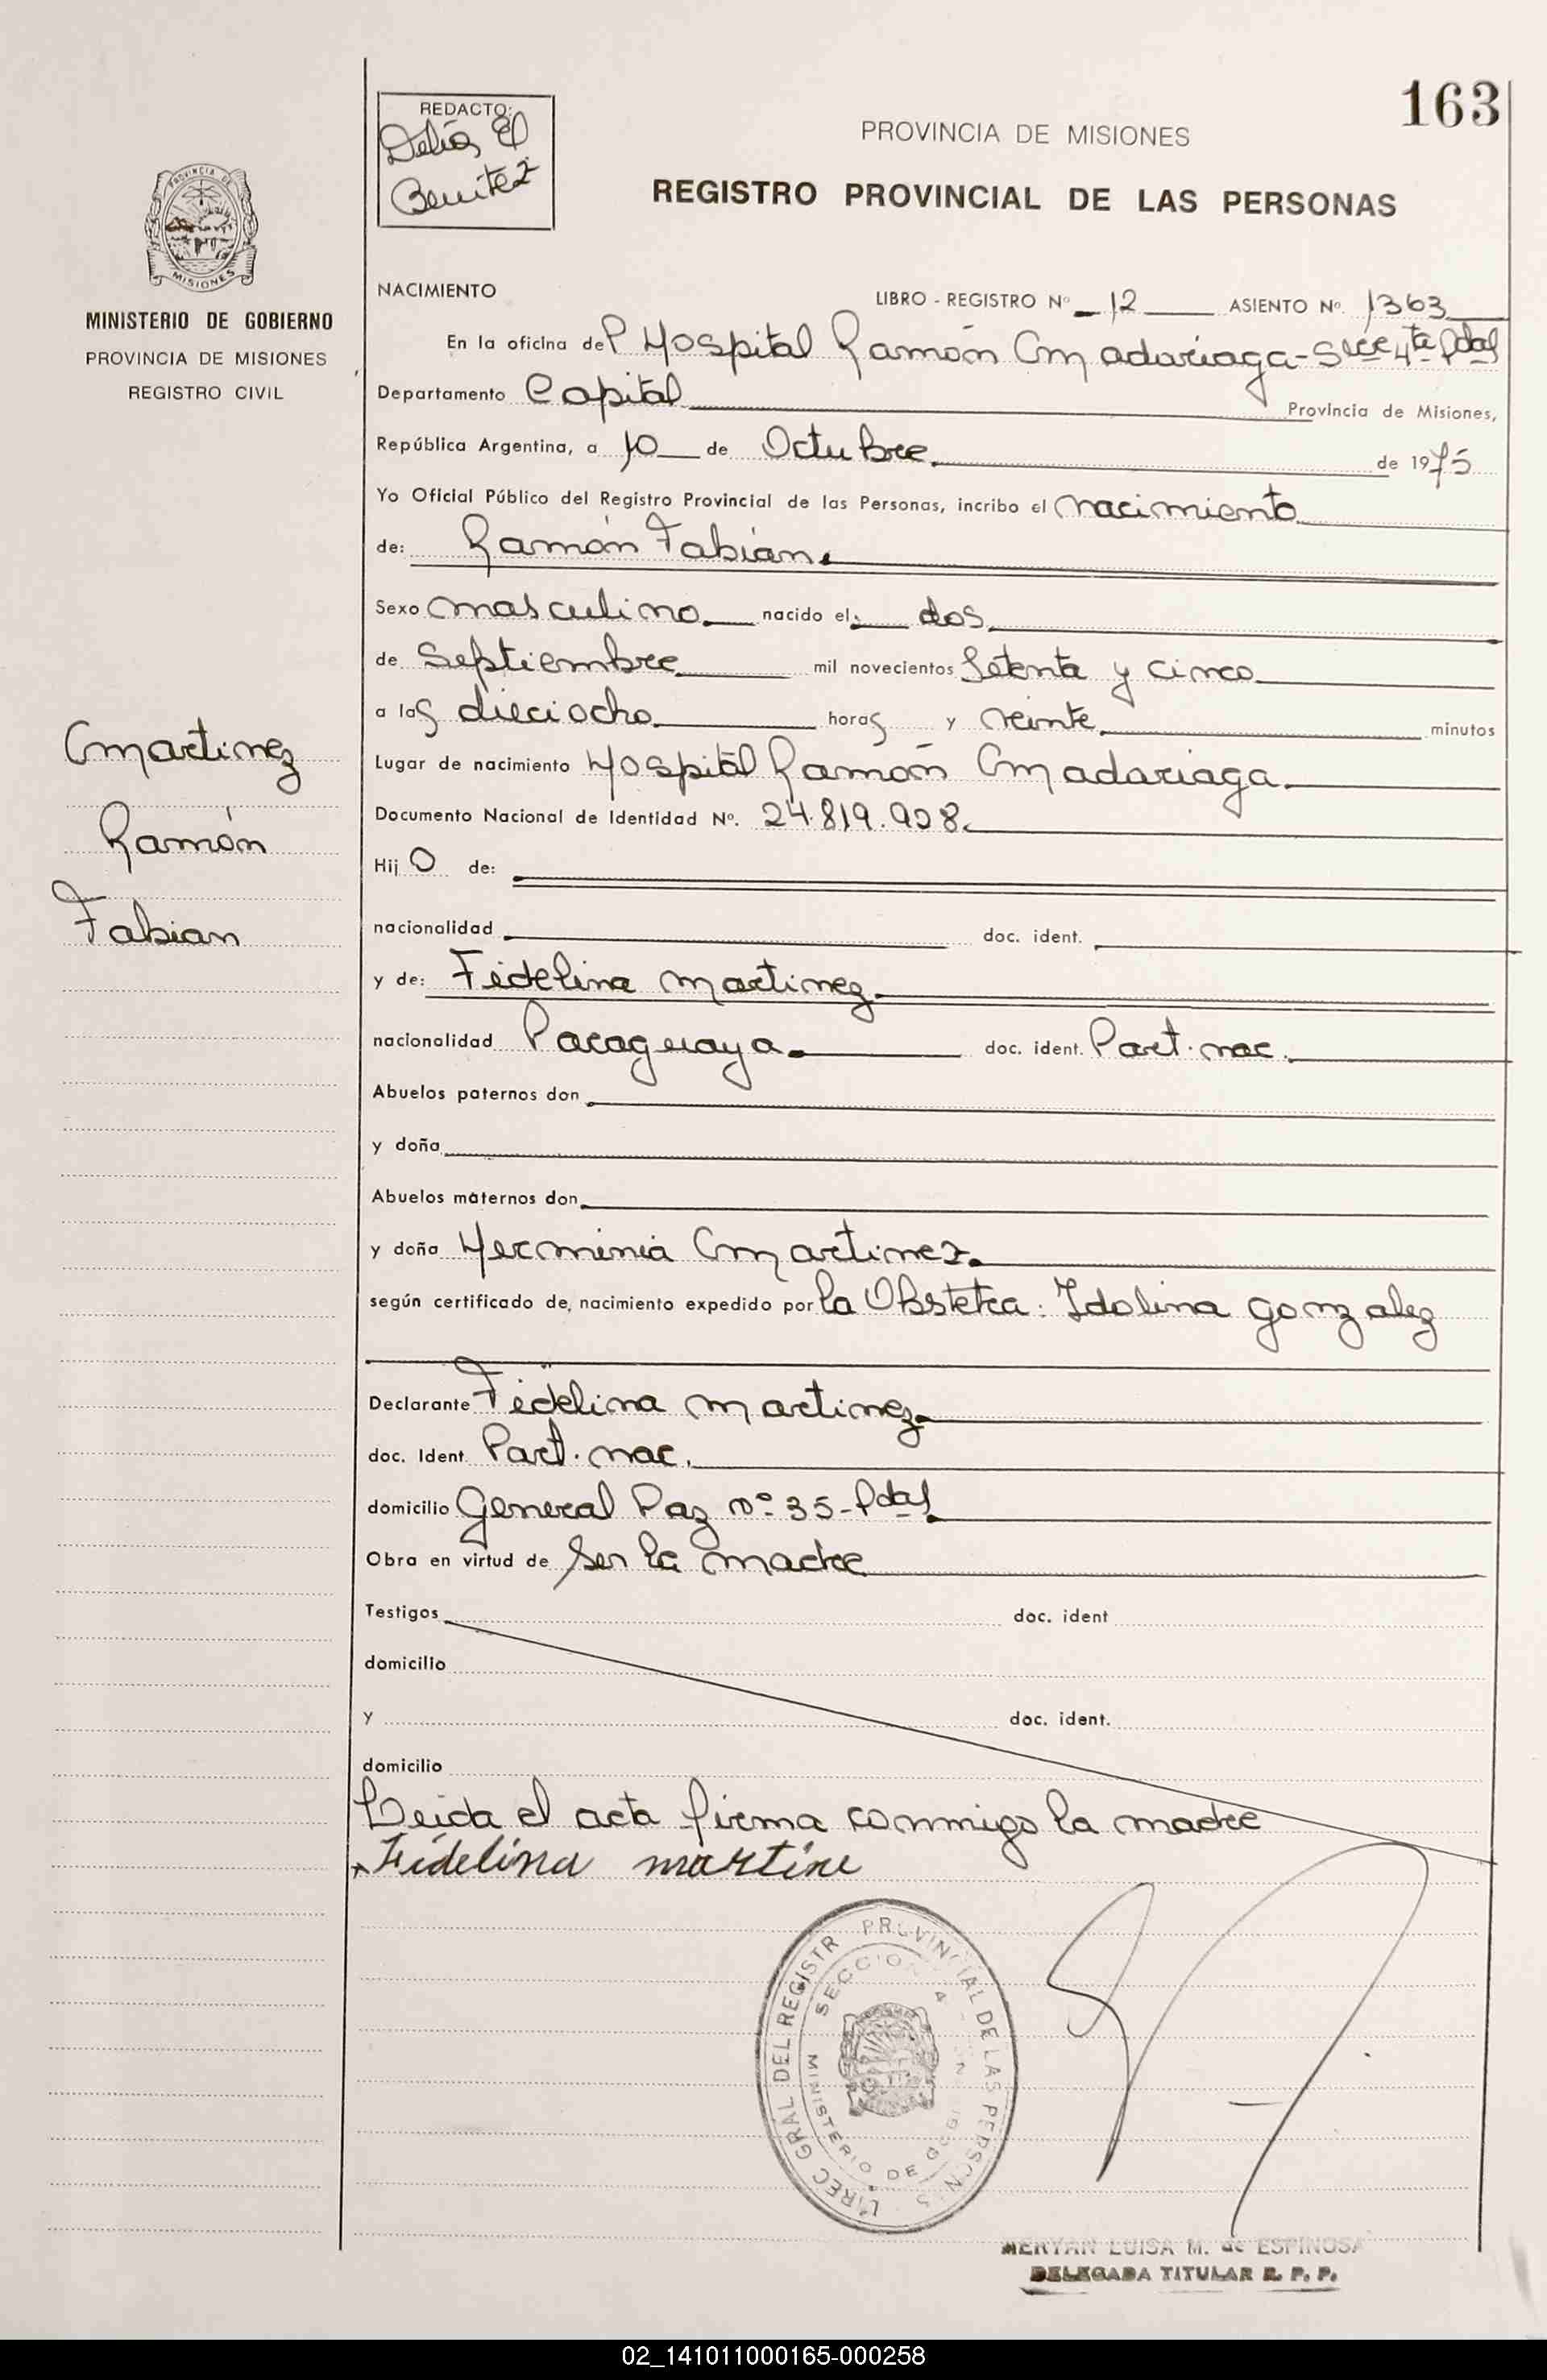 163
REDACTO:
Delia El
Benitez
PROVINCIA DE MISIONES
REGISTRO PROVINCIAL DE LAS PERSONAS
PROVINCIA DE
MISIONES
MINISTERIO DE GOBIERNO
PROVINCIA DE MISIONES
REGISTRO CIVIL
Martinez
Ramón
Fabian
NACIMIENTO
LIBRO - REGISTRO Nº 12 ASIENTO Nº 1363
En la oficina del Hospital Ramón Madariaga - Secc 4ta Pdas
Departamento Capital Provincia de Misiones,
República Argentina, a 10 de Octubre de 1975
Yo Oficial Público del Registro Provincial de las Personas, incribo el nacimiento
de: Ramón Fabián
Sexo masculino nacido el: dos
de Septiembre mil novecientos Setenta y cinco
a las dieciocho horas y veinte minutos
Lugar de nacimiento Hospital Ramón Madariaga
Documento Nacional de Identidad Nº. 24.819.908
Hij o de:
nacionalidad doc. ident.
y de: Fidelina Martinez
nacionalidad Paraguaya doc. ident. Part. nac.
Abuelos paternos don
y doña
Abuelos maternos don
y doña Herminia Martinez
según certificado de, nacimiento expedido por la Obstetra: Idolina Gonzalez
Declarante Fidelina Martinez
doc. Ident Part. nac.
domicilio General Paz nº 35 - Pdas
Obra en virtud de ser la madre
Testigos doc. ident
domicilio
y doc. ident.
domicilio
Leida el acta firma conmigo la madre
Fidelina martine
DIREC GRAL DEL REGISTR PROVINCIAL DE LAS PERSONAS
SECCION 4
MINISTERIO DE GOBI
MERYAN LUISA M. de ESPINOSA
DELEGADA TITULAR R. P. P.
02_141011000165-000258